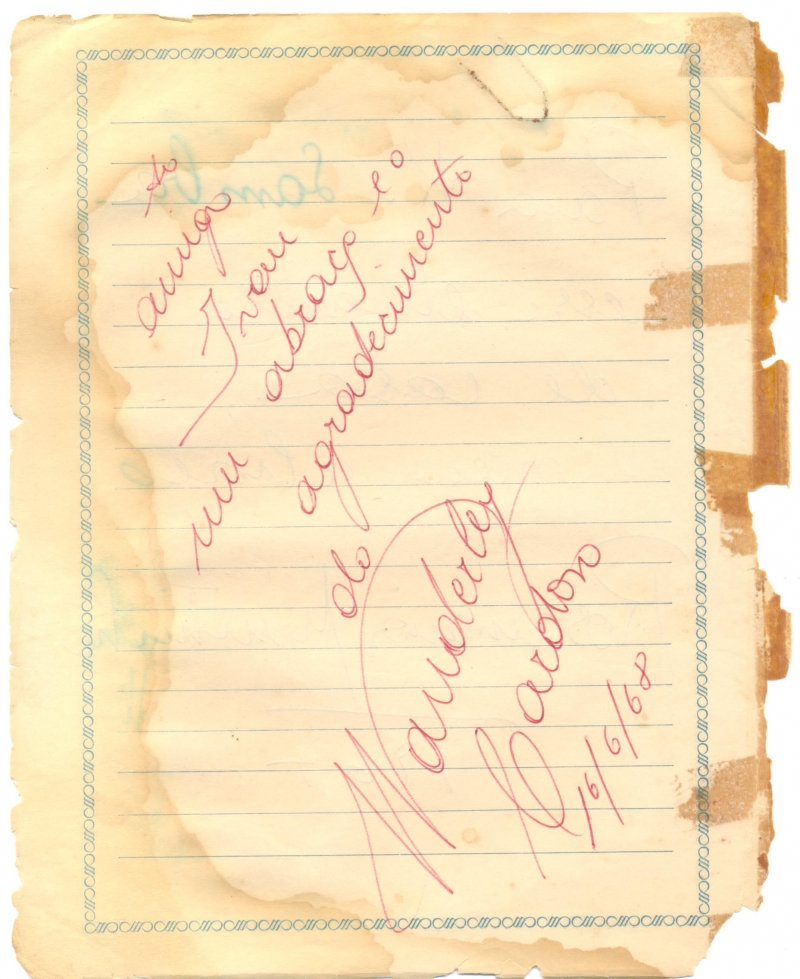 Ao
amigo
Ivan
um abraço e o
agradecimento
do
Wanderley
Cardoso
16/6/68